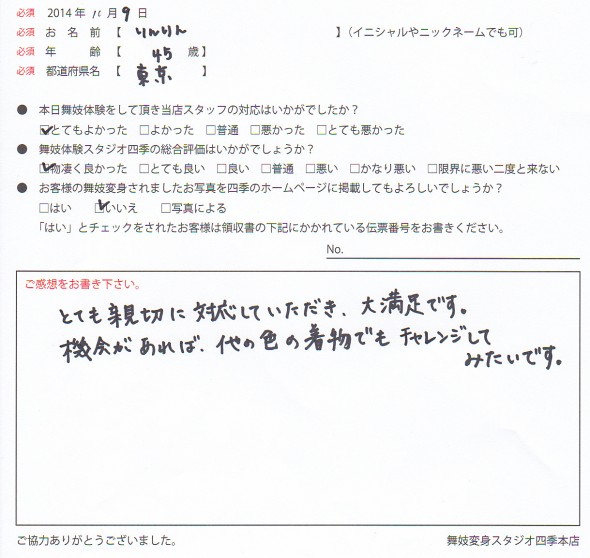 必須 2014年 11月9日
必須 お名前【 りんりん 】(イニシャルやニックネームでも可)
必須 年齢【 45 歳】
必須 都道府県名【 東京 】
● 本日舞妓体験をして頂き当店スタッフの対応はいかがでしたか?
☑とてもよかった □よかった □普通 □悪かった □とても悪かった
● 舞妓体験スタジオ四季の総合評価はいかがでしょうか?
☑物凄く良かった □とても良い □良い □普通 □悪い □かなり悪い □限界に悪い二度と来ない
● お客様の舞妓変身されましたお写真を四季のホームページに掲載してもよろしいでしょうか?
□はい ☑いいえ □写真による
「はい」とチェックをされたお客様は領収書の下記にかかれている伝票番号をお書きください。
No.
ご感想をお書き下さい。
とても親切に対応していただき、大満足です。
機会があれば、他の色の着物でもチャレンジして
みたいです。
ご協力ありがとうございました。 舞妓変身スタジオ四季本店